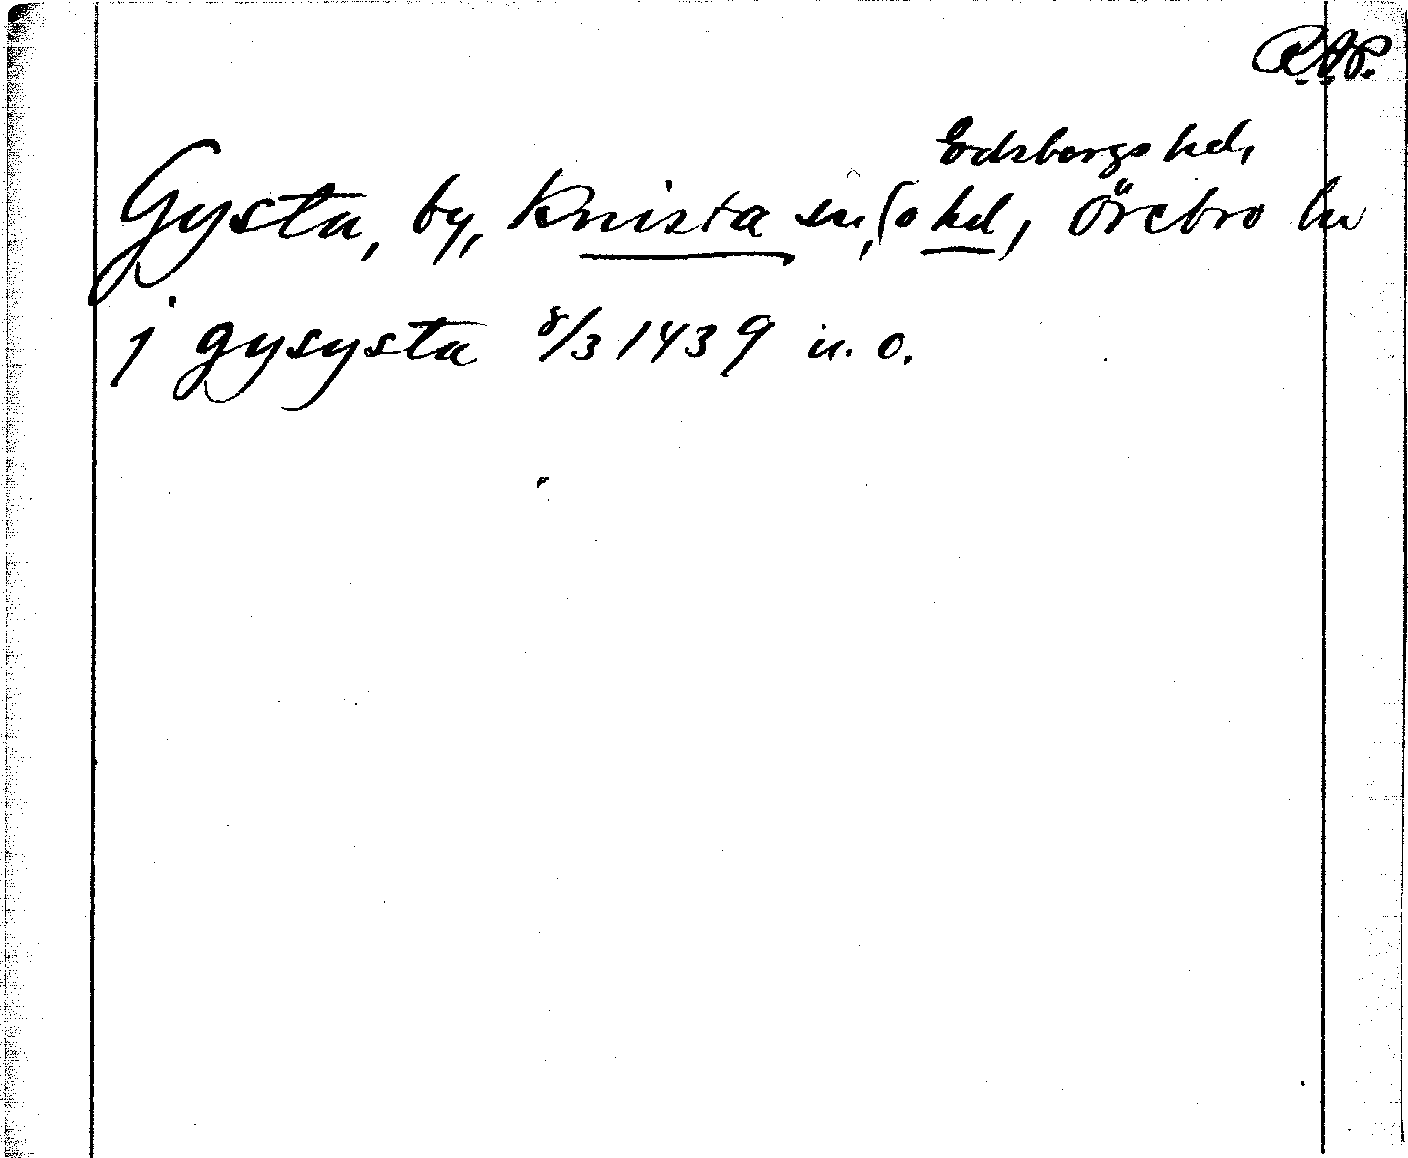 R.A.P.
Edsbergs hd,
Gysta, by, Knista sn, (o hd, Örebro ln
j gysysta 8/3 1439 u. o.